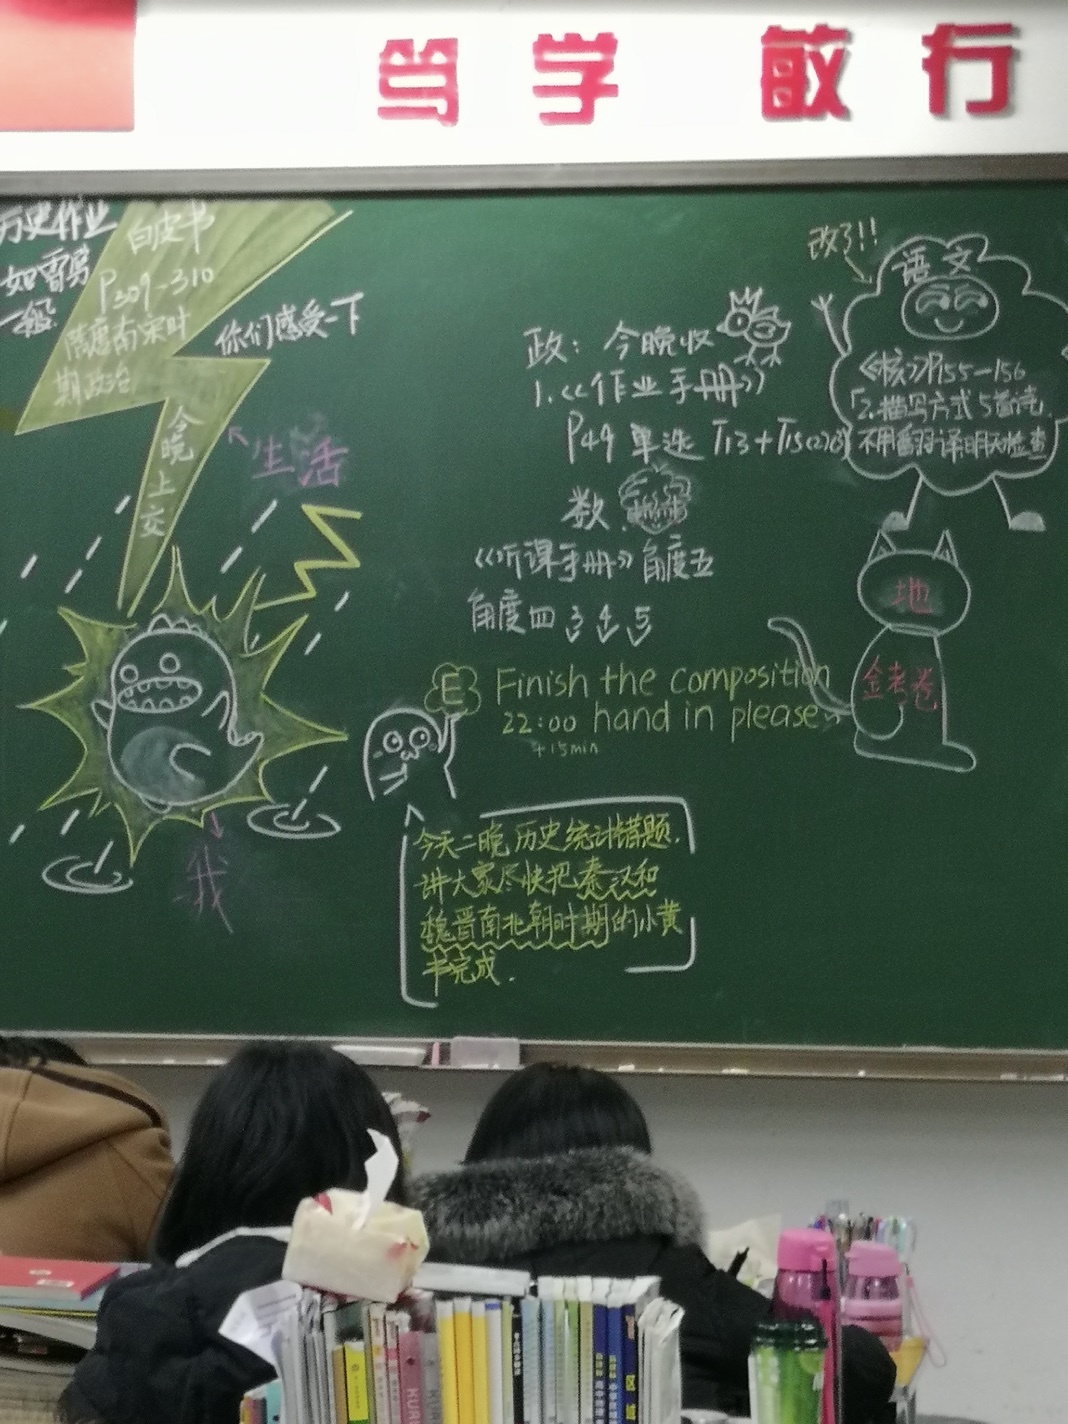 笃学 敏行
历史作业
如雷易
一般
白皮书
P309-310
隋唐南宋时
期政治
今晚上交
你们感受一下
生活
我
政: 今晚收
1.《作业手册》
P49 单选 T13+T15(2)(3)
数
《听课手册》角度五
角度四 3 4 5
E Finish the composition
22:00 hand in please~
+15min
今天二晚历史统计错题.
讲大家尽快把秦汉和
魏晋南北朝时期的小黄
书完成.
改了!!
语文
《核》P155-156
2.描写方式5首诗.
不用翻译明天检查
地
金考卷